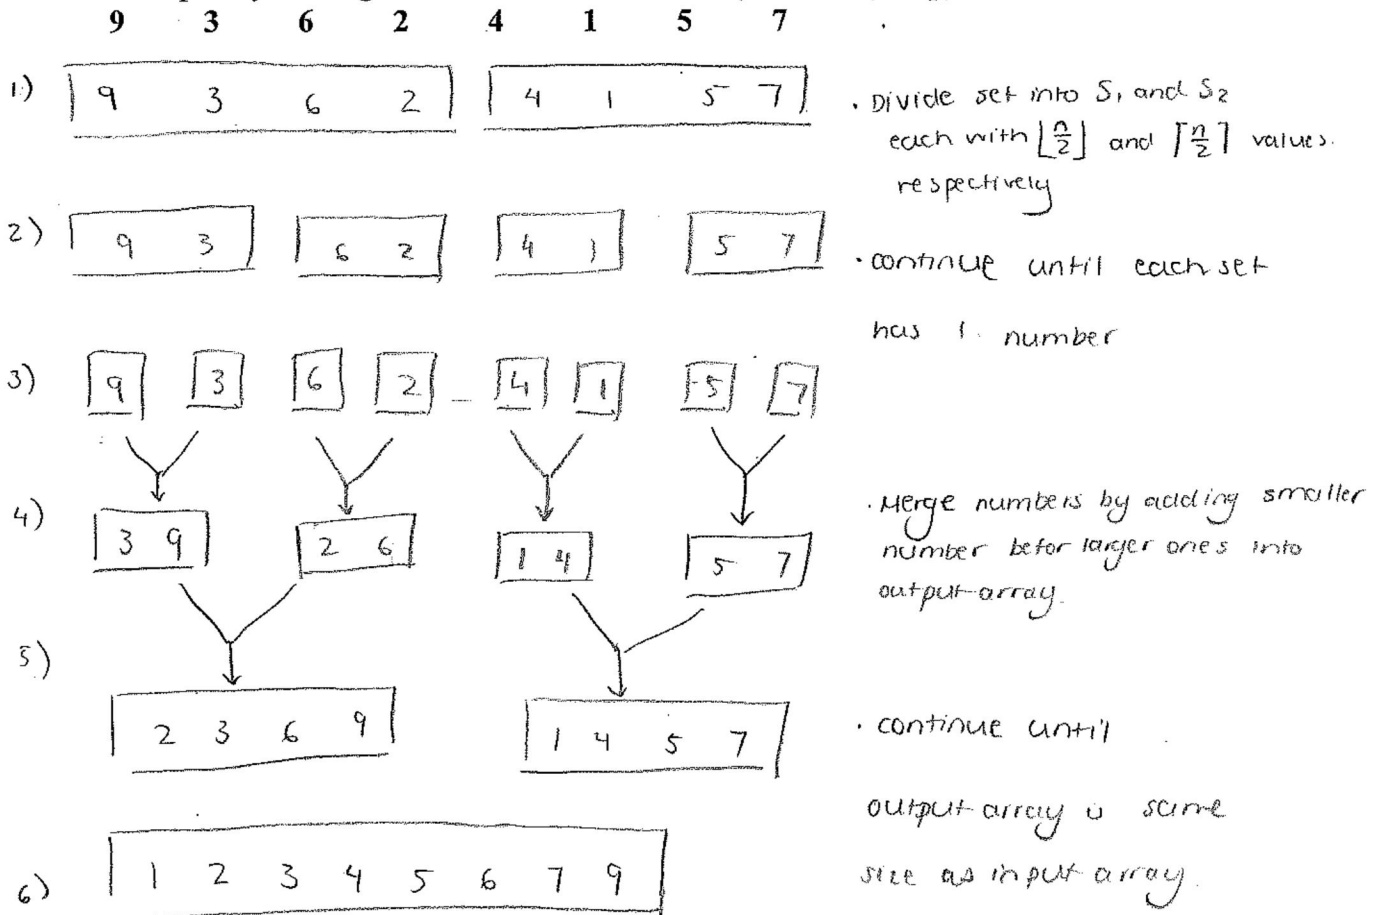 9 3 6 2 4 1 5 7
1) 9 3 6 2 4 1 5 7
. Divide set into S1 and S2
each with ⌊n/2⌋ and ⌈n/2⌉ values.
respectively
2) 9 3 6 2 4 1 5 7
. continue until each set
has 1 number
3) 9 3 6 2 4 1 5 7
4) 3 9 2 6 1 4 5 7
. Merge numbers by adding smaller
number befor larger ones into
output array.
5) 2 3 6 9 1 4 5 7
. continue until
output array is same
size as input array.
6) 1 2 3 4 5 6 7 9